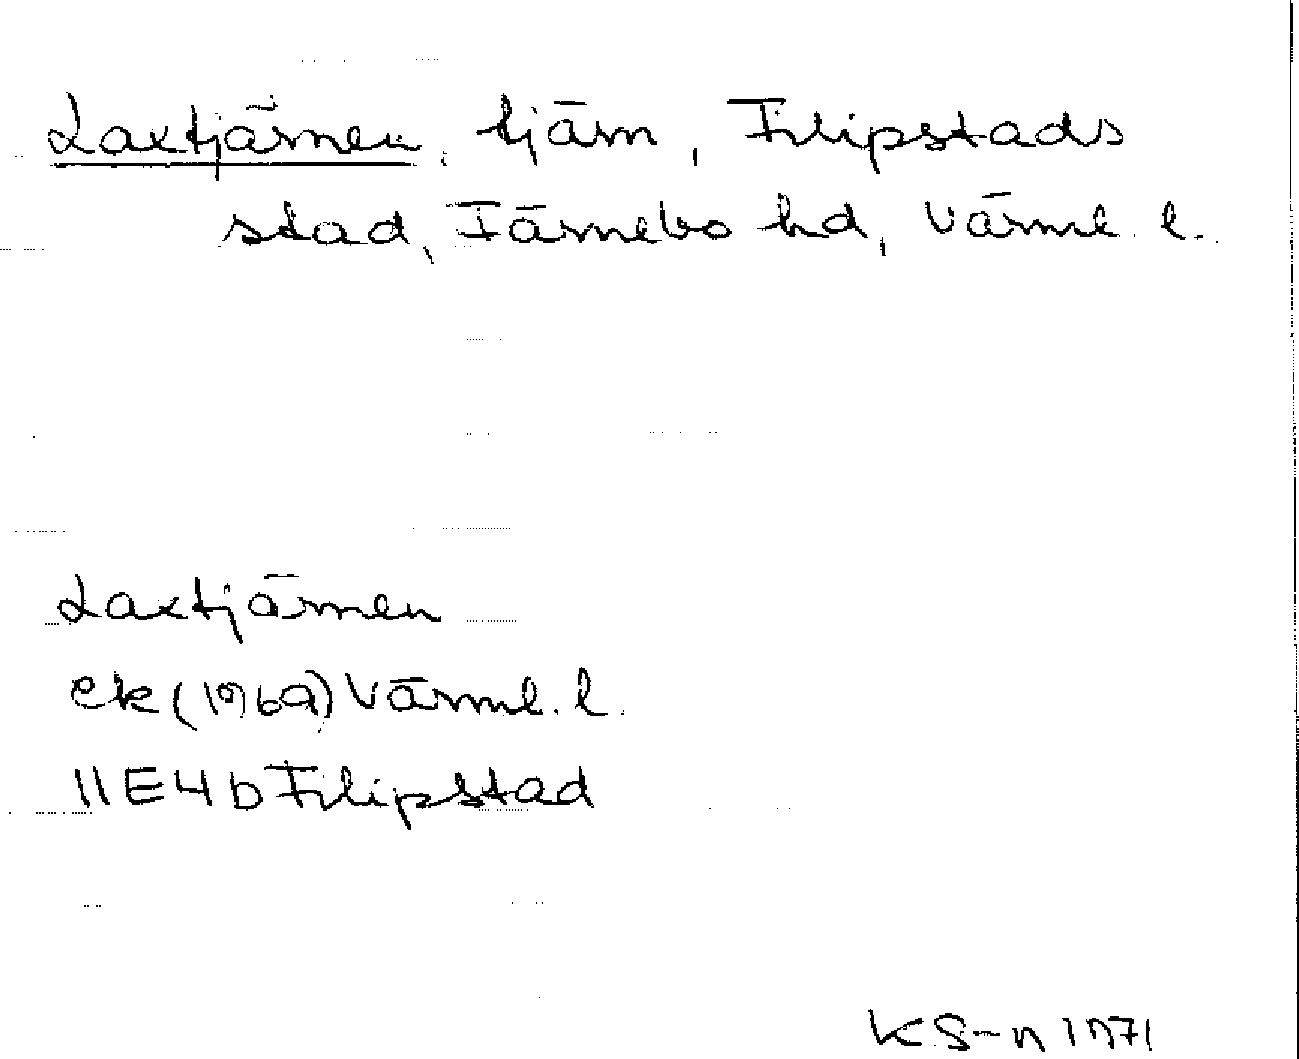 Laxtjärnen, tjärn, Filipstads
stad, Färnebo hd, Värml. l.
Laxtjärnen
ek (1969) Värml. l.
11E4b Filipstad
KS-n 1971